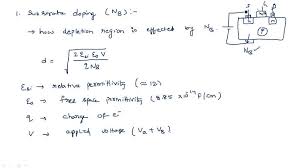 1. Substrate doping (NB) :-
→ how depletion region is effected by NB
d = √(2 εr ε0 V / 2 NB)
εr → relative permittivity (≈ 12)
ε0 → free space permittivity (8.85 × 10⁻¹⁴ F/cm)
q → charge of e⁻
V → applied voltage (Va + VB)
NB ✓